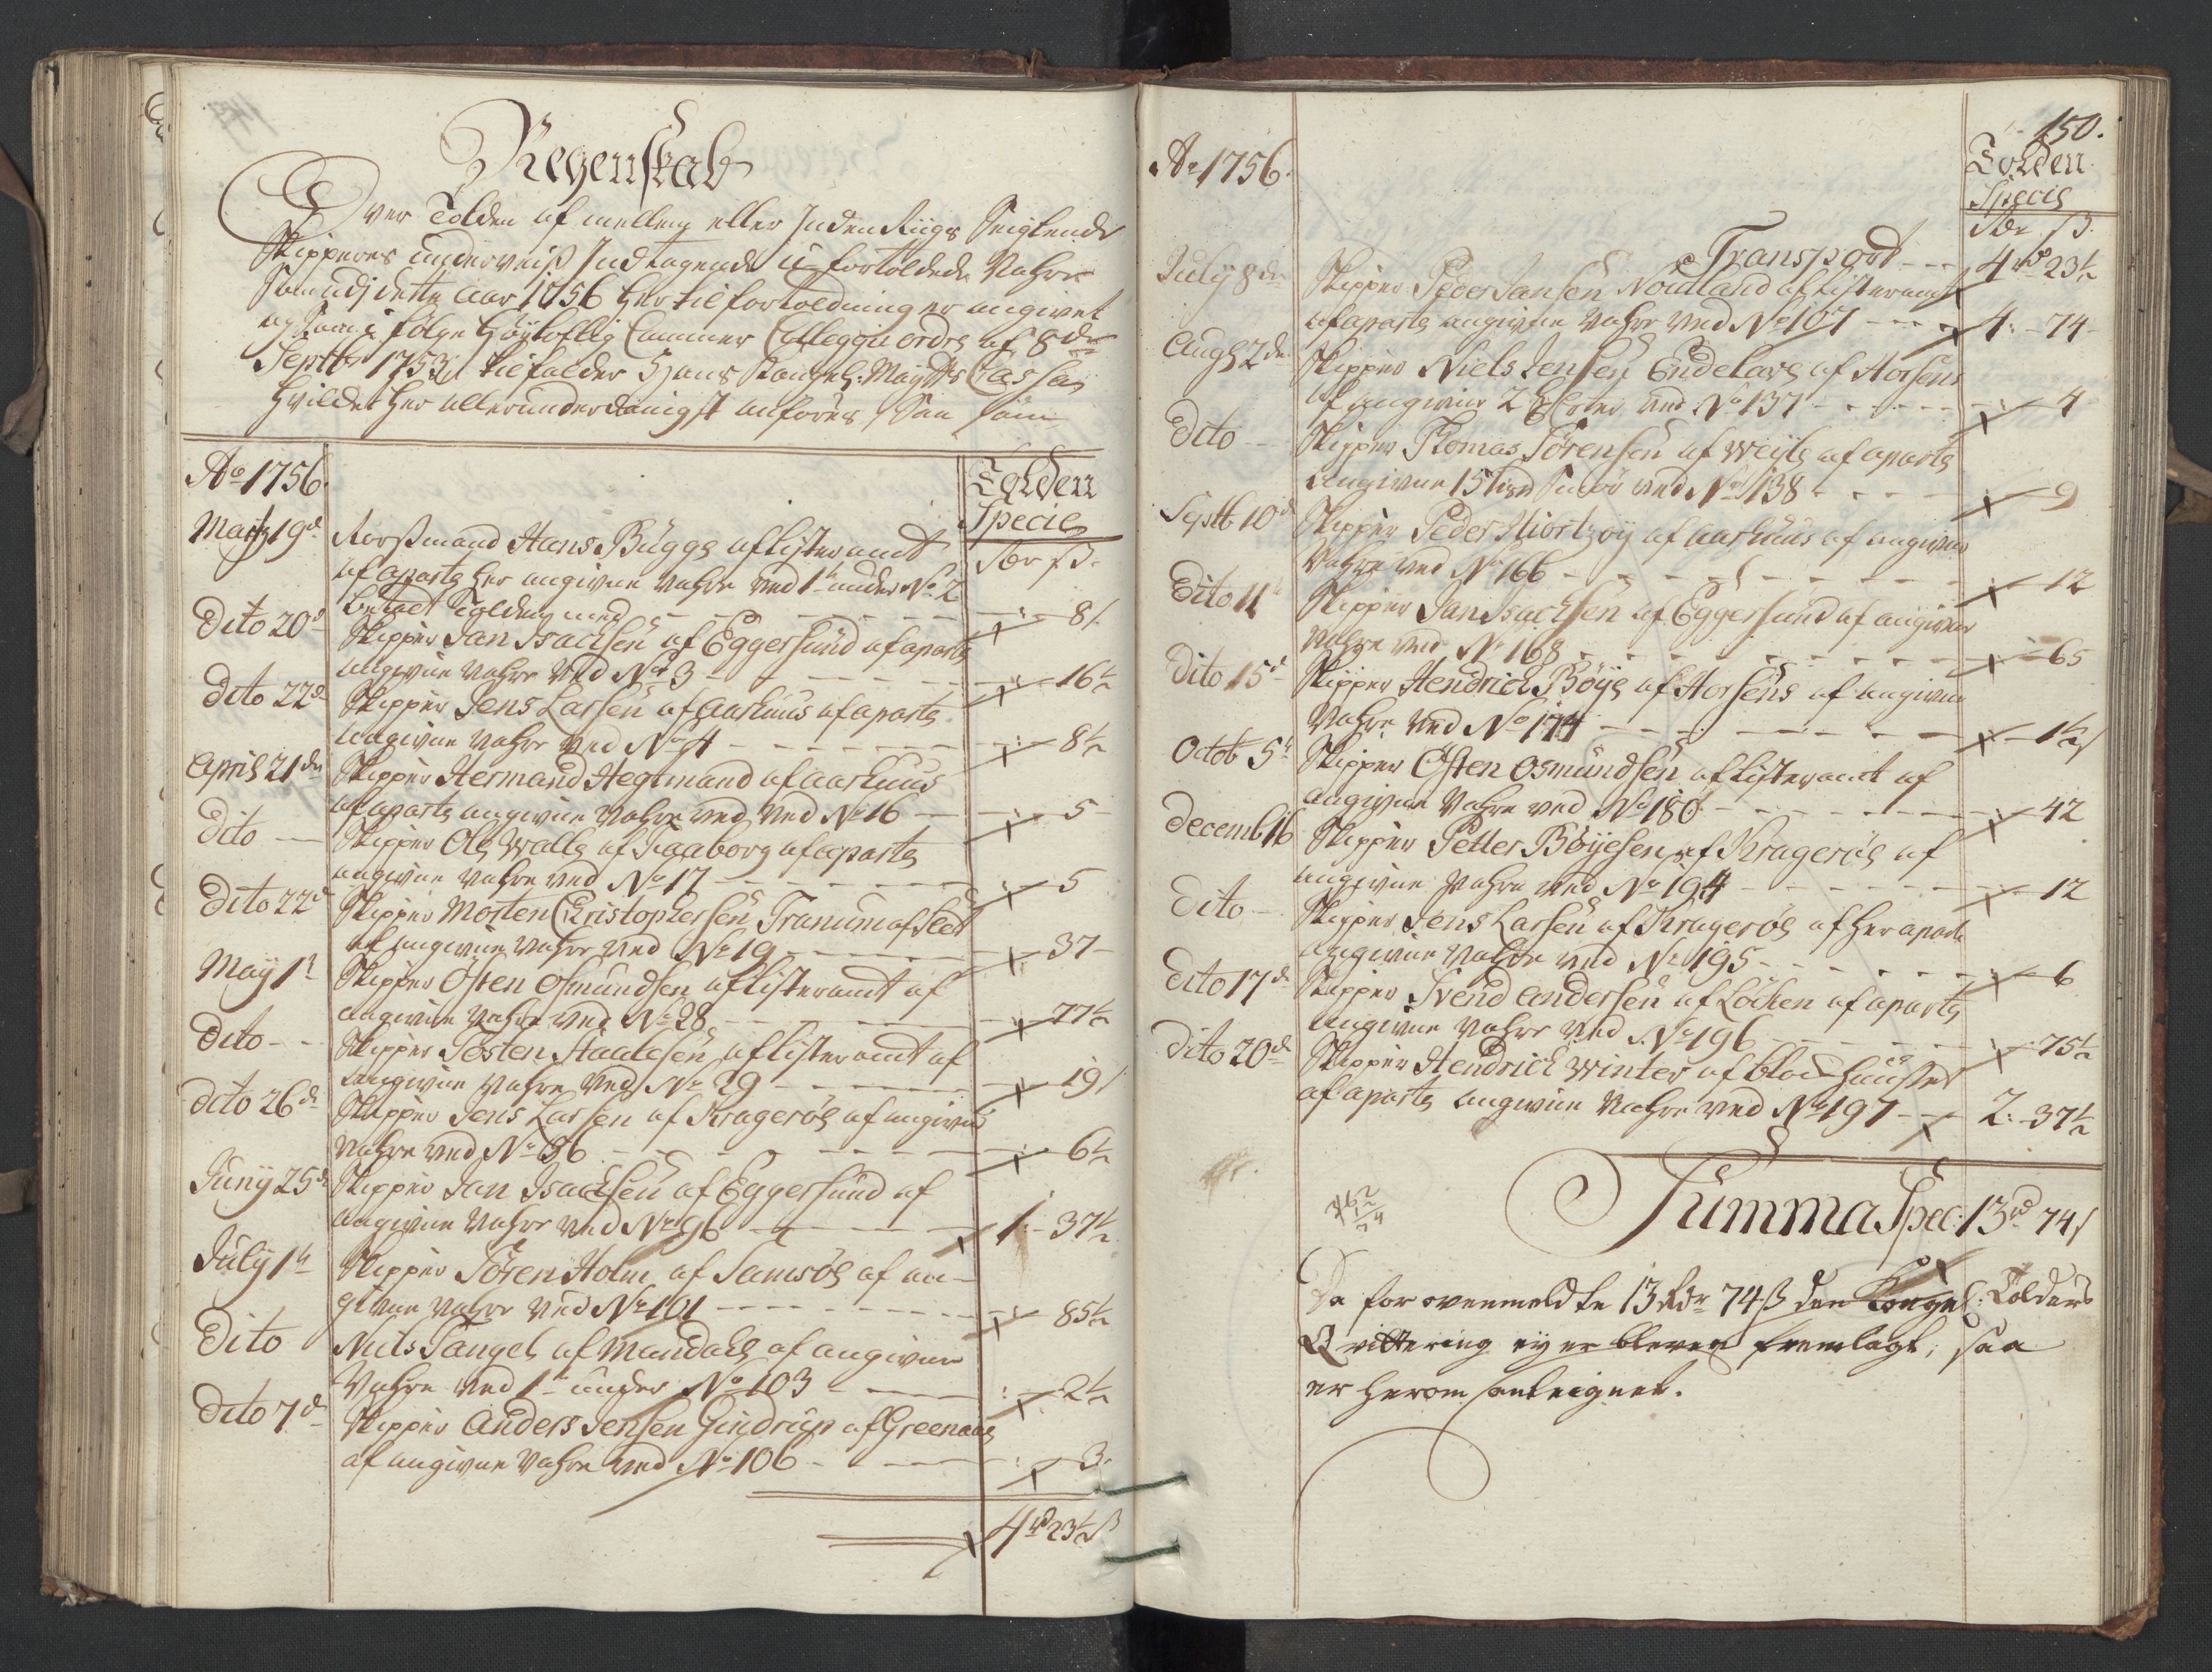 Regenskab
Over Tolden af mellem eller Inden Riigs Seiglende
Skipperes underveiß Indtagende u-fortoldede Vahre
Som udj dette aar 1756 her til fortoldning er angivet
og som i følge Høyloflig Cammer Collegii ordre af 8de
Septbr 1753 tilfalder Hans Kongel: Maysts Cassa
hvilcket her allerunderdanigst anføres, saa som
Ao 1756.
Tolden
Specie
Rdr ß.
Martz 19d
Korßmand Hans Bügge af Lister amt
af aparte her angivne Vahre ved 1t under No 2
betalt Tolden med - - - 8
Dito 20d
Skipper Jan Isachsen af Eggersund af aparte
angivne Vahre ved No 3 - - - 16½
Dito 22d
Skipper Jens Larsen af Aarhuus af aparte
angivne Vahre ved No 4 - - - 8½
April 21de
Skipper Hermand Hegtmand af aarhuus
af aparte angivne Vahre ved ved No 16 - 5
Dito
Skipper Ole Walle af Faaborg af aparte
angivne Vahre ved No 17 - - - 5
Dito 22d
Skipper Morten Christophersen Tranum af Slet
af angivne Vahre ved No 19 - - - 37
May 1t
Skipper Østen Osmundsen af Lister amt af
angivne Vahre ved No 28 - - - 77½
Dito
Skipper Tosten Staalesen af Lister amt af
angivne Vahre ved No 29 - - - 19
Dito 26d
Skipper Jens Larsen af Kragerøe af angivne
Vahre ved No 36 - - - 6½
Juny 25d
Skipper Jan Isachsen af Eggersund af
angivne Vahre ved No 96 - - - 1 - 37½
July 1t
Skipper Søren Holm af Samsøe af an-
givne Vahre ved No 101 - - - 85½
Dito
Niels Tangel af Mandahl af angivne
Vahre ved 1t under No 103 - - - 2½
Dito 7d
Skipper Anders Jensen Gindrup af Greenaae
af angivne Vahre ved No 106 - - - 3
4rd 23½ ß
150.
Ao 1756.
Tolden
Specie
Rdr ß.
Transport - - 4rd 23½
July 8de
Skipper Peder Jansen Nouland af Lister amt
af aparte angivne Vahre ved No 107 - - - 4: - 74
Aug: 2de
Skipper Niels Jensen Endelave af Horsens
af angivne 2 ved No 137 - - - 4
Dito
Skipper Thomas Sørensen af Weyle af aparte
angivne 15 Smør ved No 138 - - - 9
Septb 10d
Skipper Peder Hiortzøy af aarhuus af angivne
Vahre ved No 166 - - - 12
Dito 11t
Skipper Jan Isachsen af Eggersund af angivne
Vahre ved No 168 - - - 65
Dito 15d
Skipper Hendrich Bøye af Horsens af angivne
Vahre ved No 174 - - - 1½
Octob 5t
Skipper Østen Osmundsen af Lister amt af
angivne Vahre ved No 180 - - - 42
Decemb 16
Skipper Petter Bøyesen af Kragerøe af
angivne Vahre ved No 194 - - - 12
Dito
Skipper Jens Larsen af Kragerøe af her aparte
angivne Vahre ved No 195 - - - 6
Dito 17d
Skipper Svend Andersen af Løcken af aparte
angivne Vahre ved No 196 - - - 75½
Dito 20d
Skipper Hendrich Winter af Blockhuußet
af aparte angivne Vahre ved No 197 - - 2: - 37½
Summa Spec: 13rd 74
Da for ovenmeldte 13 Rdr 74 ß den Kongel: Tolders
Qvittering ey er bleven fremlagt, saa
er herom anteignet.